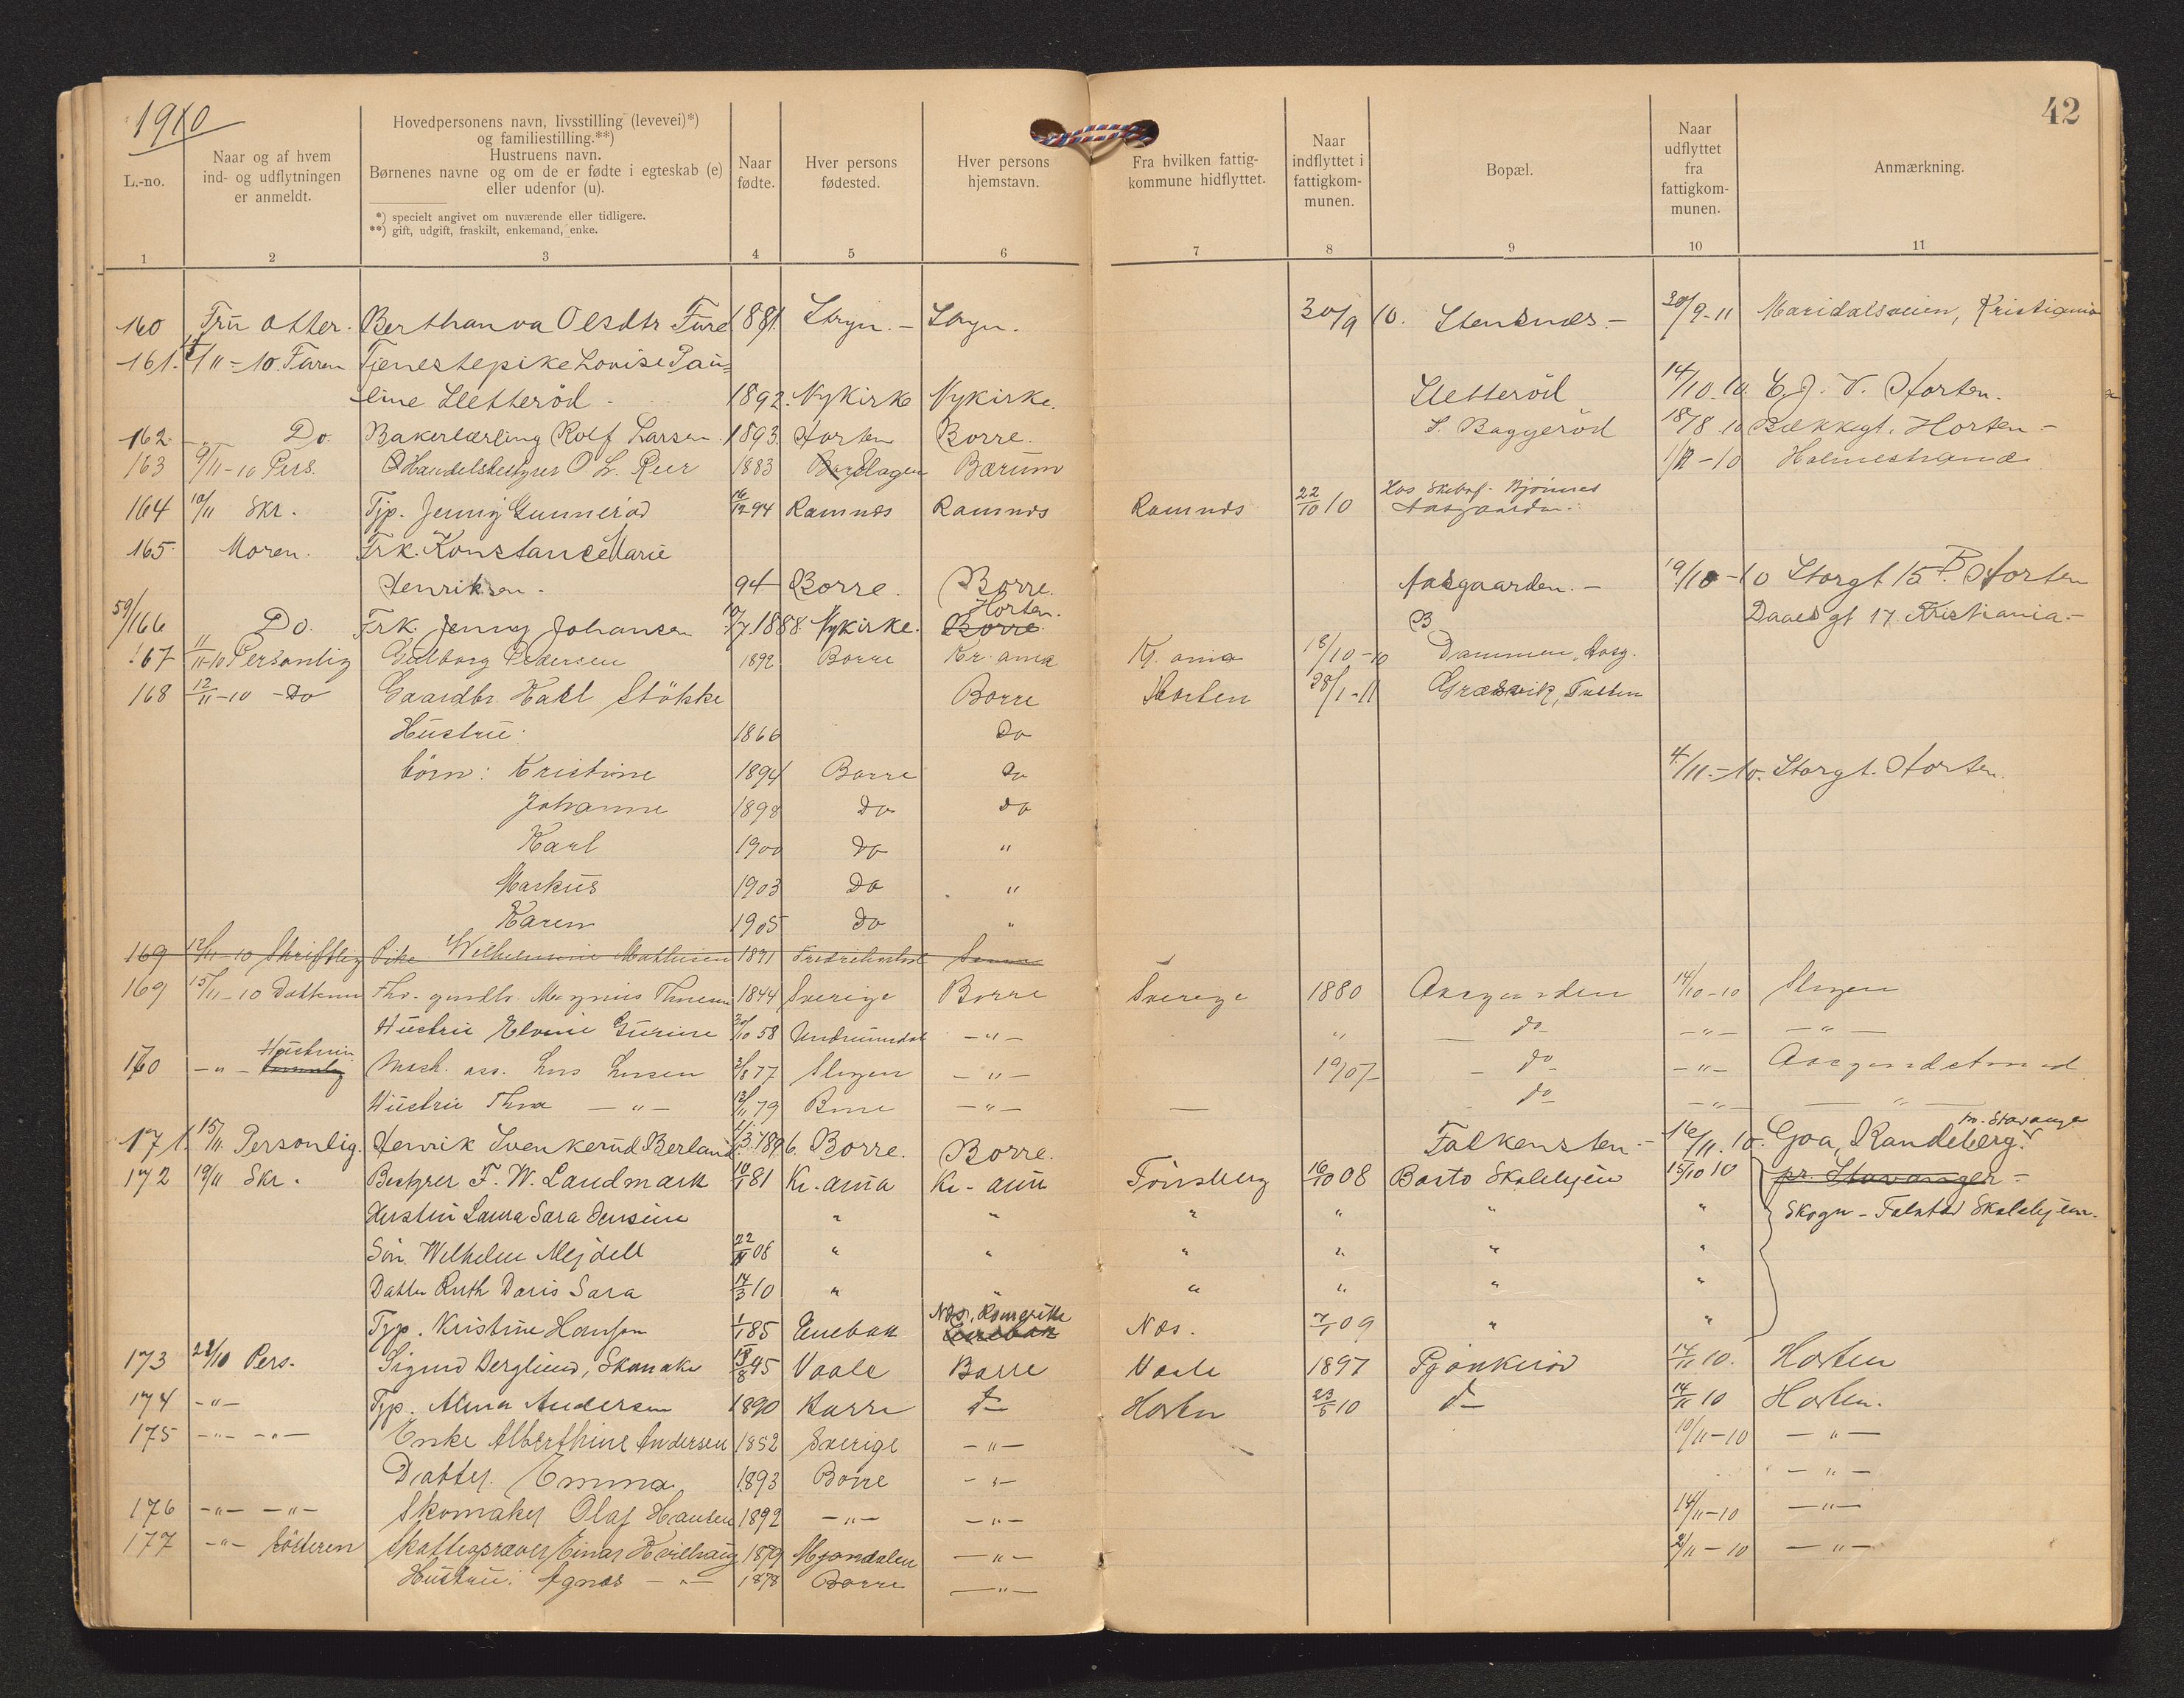 1910
42
L.-no.
Naar og af hvem
ind- og udflytningen
er anmeldt.
Hovedpersonens navn, livsstilling (levevei)*)
og familiestilling.**)
Hustruens navn.
Børnenes navne og om de er fødte i egteskab (e)
eller udenfor (u).
*) specielt angivet om nuværende eller tidligere.
**) gift, udgift, fraskilt, enkemand, enke.
Naar
fødte.
Hver persons
fødested.
Hver persons
hjemstavn.
Fra hvilken fattig-
kommune hidflyttet.
Naar
indflyttet i
fattigkom-
munen.
Bopæl.
Naar
udflyttet
fra
fattigkom-
munen.
Anmærkning.
1 2 3 4 5 6 7 8 9 10 11
160 Fru Otter. Berthanna Olsdtr Fure 1881. Stryn. - Stryn. 30/9 10. Stensnæs. - 30/9-11 Maridalsveien, Kristiania
161. /11-10. Faren Tjenestepike Lovise Pau=
line Sletteröd - 1892. Nykirke Nykirke. Sletteröd 14/10.10. C. J. V. Horten.
162. Do. Bakerlærling Rolf Larsen. 1893. Horten Borre. S. Baggeröd 18/8 10 Bækkegt. Horten -
163 9/11-10 Pers. Handelsbestyrer O. L. Reer 1883 Slagen Bærum 1/12-10 Holmestrand
164 10/11 Skr. Tjp. Jenny Gunneröd 16/12 94 Ramnes Ramnes Ramnes 22/10 10 Hos Bjönnes
Aasgaarden.
165. Moren. Frk. Konstance Marie
Henriksen. 94 Borre. Borre. Aasgaarden. - 19/10-10 Storgt 15 B. Horten
59/166 Do. Frk. Jenny Johansen 10/7 1888. Nykirke. Borre. Horten. B Daaes gt 17. Kristiania. -
167 11/11-10 Personlig Gulborg Pedersen 1892 Borre Kr. ania Kr. ania 18/10-10 Dammen, Aasg.
168 12/11-10 - Do Gaardbr. Karl Stökke Borre Horten 28/1-11 Græsvik, Tusten
Hustru: 1866 Do
börn: Kristine 1894 Borre Do 4/11-10. Storgt. Horten.
Johanne 1898 Do Do
Karl 1900 Do "
Markus 1903 Do "
Karen 1905 Do "
169 12/11-10 Skriftlig Pike Wilhelmine Mathisen 1891
169 15/11-10 Datteren Fhv. gaardbr. Magnus 1844 Sverige Borre Sverige 1880 Aasgaarden 14/10-10 Slagen
Hustru Elvine Gurine 30/10 58 Undrumsdal - " - " do - " - - " -
170 - " - Hustruen Mask. ass. Lars Larsen 3/8 77 Slagen - " - 1907 do - " - Aasgaardstrand
Hustru Thea - " - 13/11 79 Borre - " - do - " - - " -
171. 15/11. Personlig. Henrik Svenkerud Berland /3. 1896. Borre. Borre. Falkensten. - 16/11.10. Goa, Randeberg pr. Stavanger
172 19/11 Skr. Bestyrer F. W. Landmark 10/1 81 Kr. ania Kr. ania Tönsberg 16/10 08 Bastö Skolehjem 15/10 10 pr. Stavanger -
Hustru Laura Sara Jensine " " " " " " Skogn - Falstad Skolehjem.
Sön. Wilhelm Mejdell 22/11 06 " " " " " "
Datter Ruth Doris Sara 14/3 10 " " " " " "
Tjp. Kristine Hansen 1/1 85 Enebak Enebak Nes, Romerike Nes. 7/1 09 " "
173 22/10 Pers. Sigurd Berglund, Skomaker 18/8 95 Vaale Borre Vaale 1897 14/11 10. Horten
174 - " - Tjp. Alma Andersen 1890 Borre do Horten 23/5 10 do 14/11 10 Horten.
175 - " - - " - Enke Alberthine Andersen 1852 Sverige - " - 10/11-10 - " -
Datter. Emma 1893 Borre - " - - " -
176 - " - - " - Skomaker Olaf Hansen 1892 - " - - " - 14/11-10 - " -
177 - " - Søsteren Skatteopkræver Einar Kvilhaug 1879 Mjøndalen - " - 2/11-10 - " -
Hustru: Agnes - " - 1878 Borre - " -